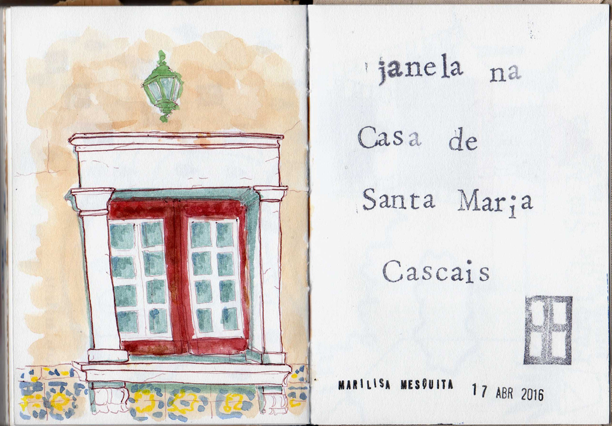 janela na
Casa de
Santa Maria
Cascais
MARILISA MESQUITA 17 ABR 2016